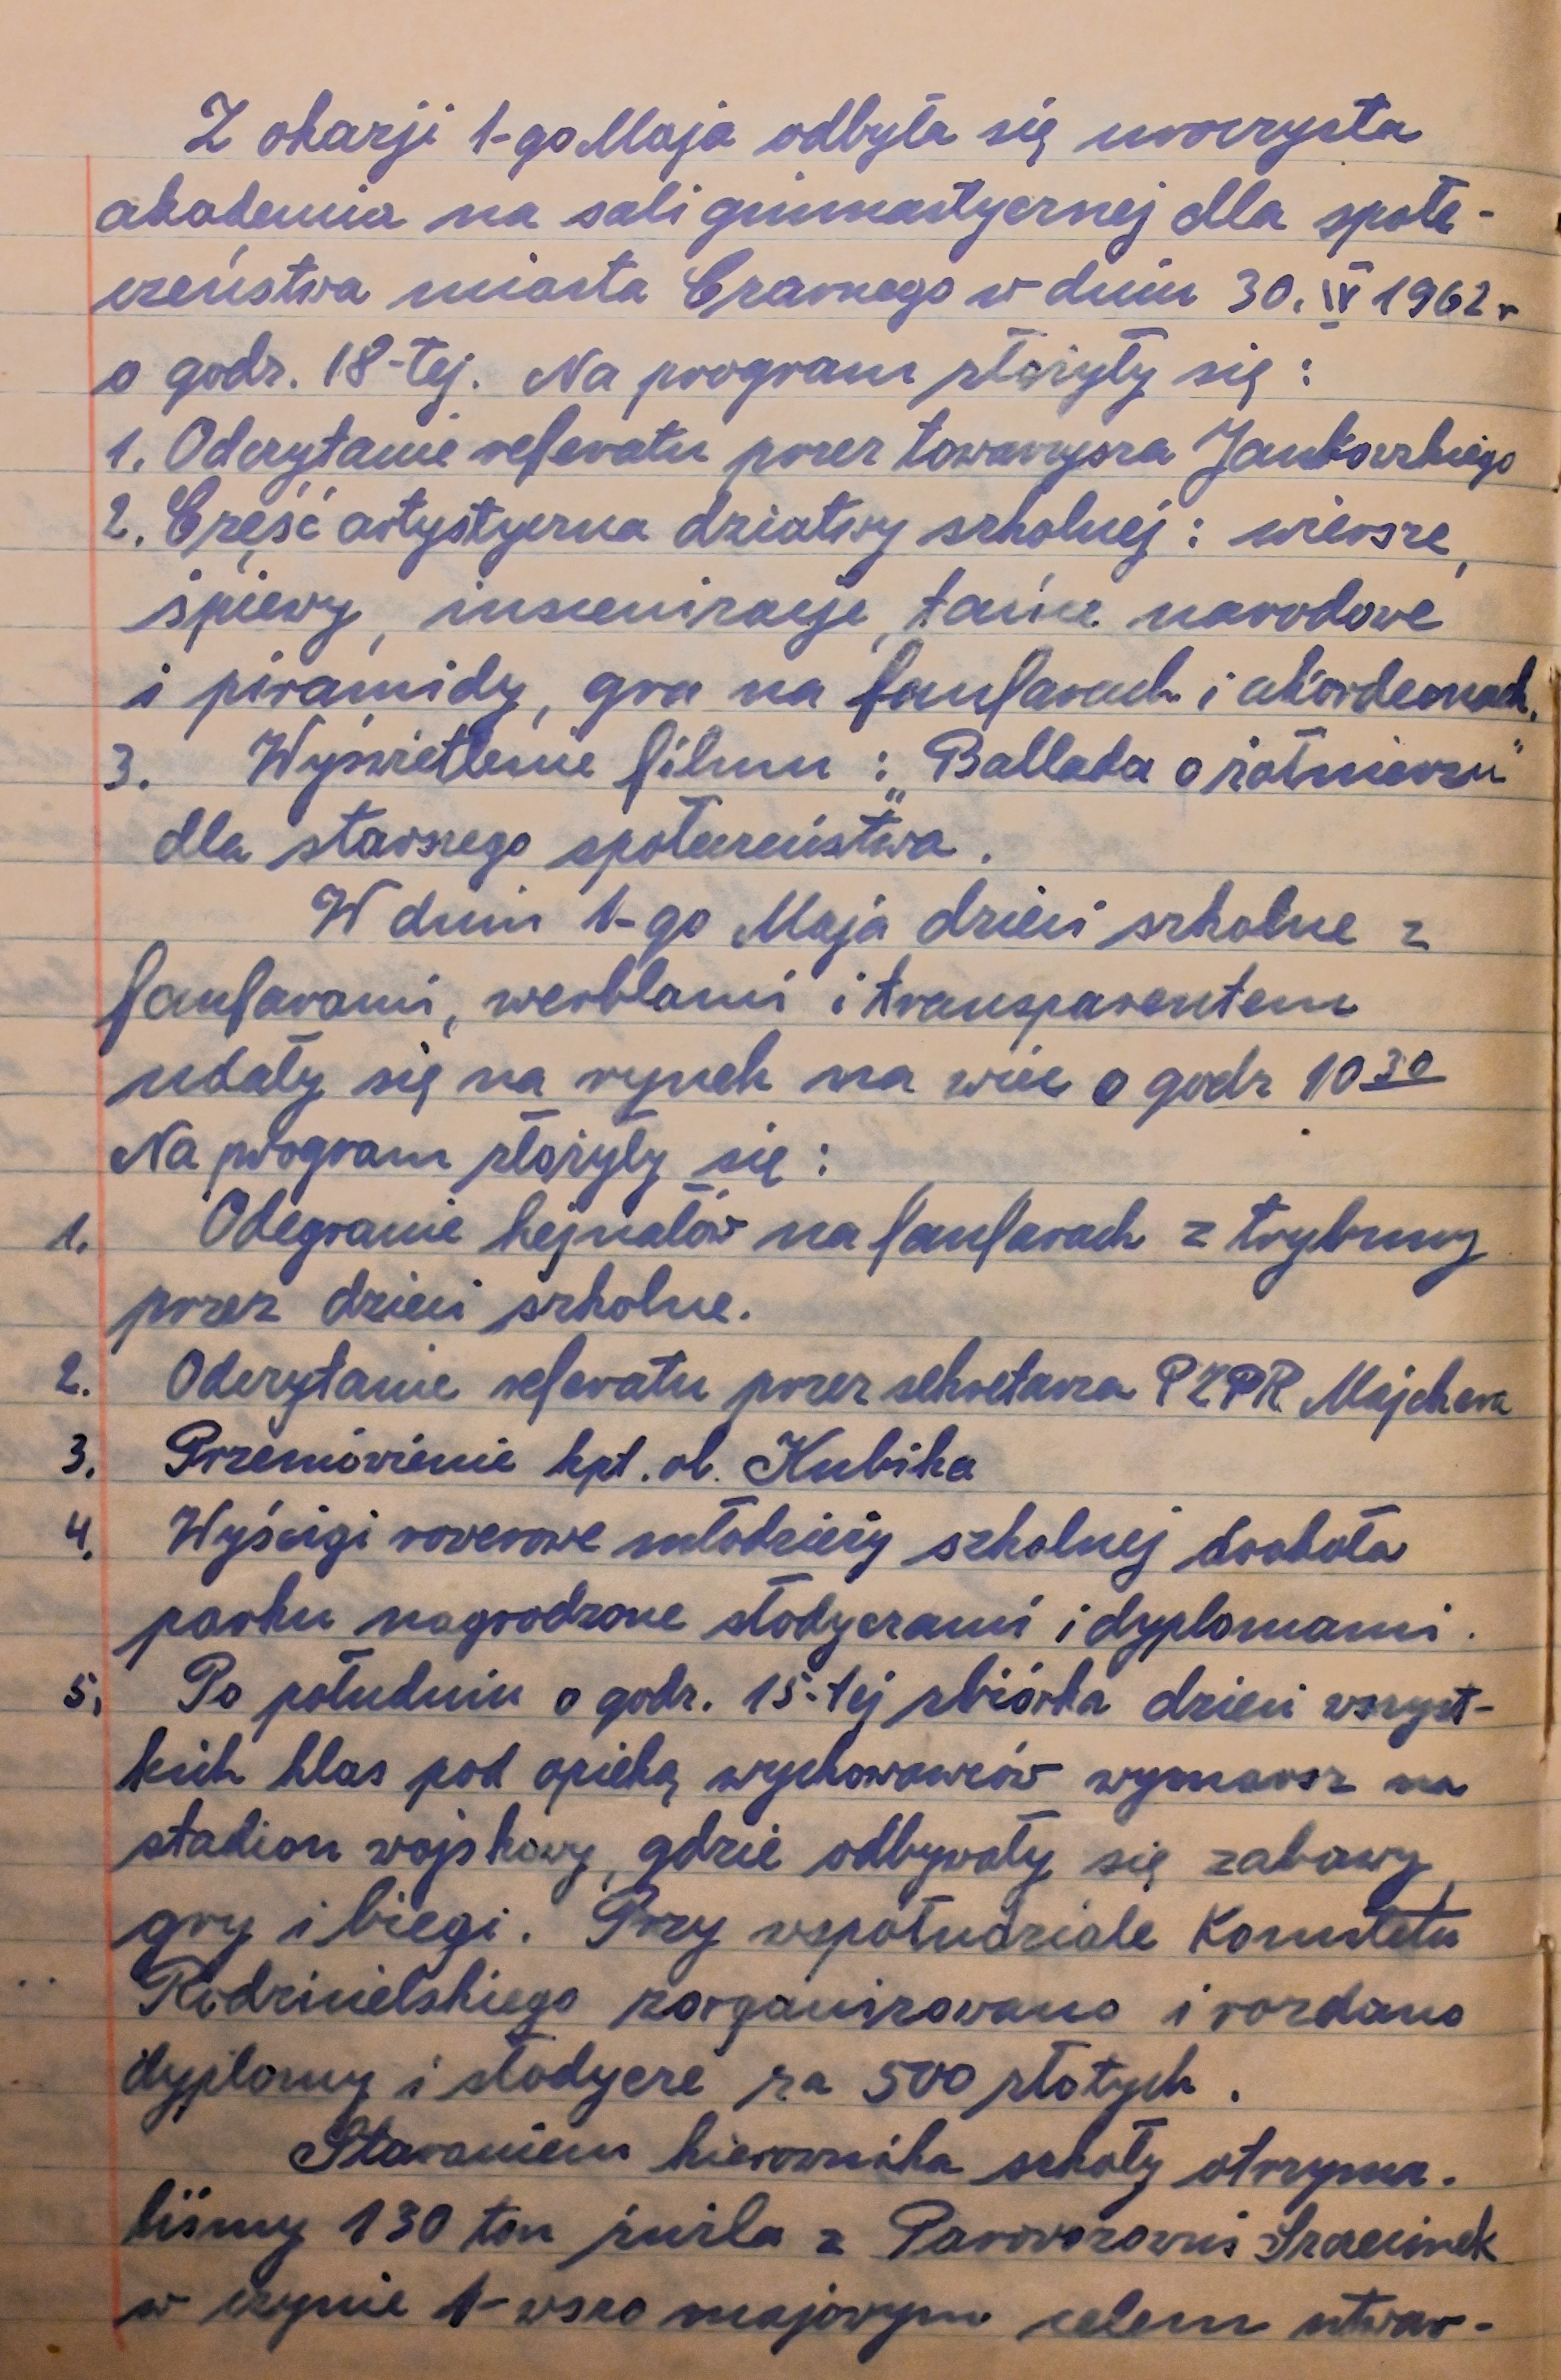 Z okazji 1-go Maja odbyła się uroczysta
akademia na sali gimnastycznej dla społe-
czeństwa miasta Czarnego w dniu 30. IV 1962 r
o godz. 18-tej. Na program złożyły się :
1. Odczytanie referatu przez towarzysza Jankowskiego
2. Część artystyczna dziatwy szkolnej : wiersze,
śpiewy, inscenizacje, tańce narodowe
i piramidy, gra na fanfarach i akordeonach.
3. Wyświetlenie filmu : „Ballada o żołnierzu"
dla starszego społeczeństwa.
W dniu 1-go Maja dzieci szkolne z
fanfarami, werblami i transparentem
udały się na rynek na wiec o godz 10 30
Na program złożyły się :
1. Odegranie hejnałów na fanfarach z trybuny
przez dzieci szkolne.
2. Odczytanie referatu przez sekretarza PZPR Majchera
3. Przemówienie kpt. ob. Kubika
4. Wyścigi rowerowe młodzieży szkolnej dookoła
parku nagrodzone słodyczami i dyplomami.
5. Po południu o godz. 15-tej zbiórka dzieci wszyst-
kich klas pod opieką wychowawców wymarsz na
stadion wojskowy, gdzie odbywały się zabawy,
gry i biegi. Przy współudziale Komitetu
Rodzicielskiego zorganizowano i rozdano
dyplomy i słodycze za 500 złotych.
Staraniem kierownika szkoły otrzyma-
liśmy 130 ton żużla z Parowozowni Szczecinek
w czynie 1-wszo majowym celem utwar-